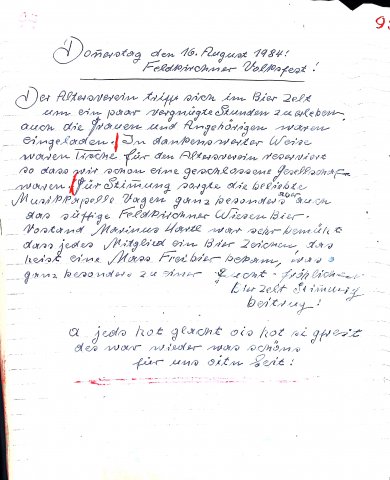 Donnerstag den 16. August 1984!
Feldkirchner Volksfest!
Der Altersverein trifft sich im Bier Zelt
um ein paar vergnügte Stunden zu erleben,
auch die Frauen und Angehörigen waren
eingeladen. In dankenswerter Weise
waren Tische für den Altersverein reserviert
so dass wir schon eine geschlossene Gesellschaft
waren. Für Stimung sorgte die beliebte
Musikkapelle Vagen ganz besonders aber auch
das süffige Feldkirchner Wiesen Bier.
Vorstand Marinus Hartl war sehr bemüht
dass jedes Mitglied ein Bier Zeichen, das
heist eine Mass Freibier bekam, was
ganz besonders zu einer Feucht-fröhlichen
Bierzelt Stimung
beitrug!
A jeds hot glacht ois hot si gfreit
des war wieder was schöns
für uns oitn Leit!